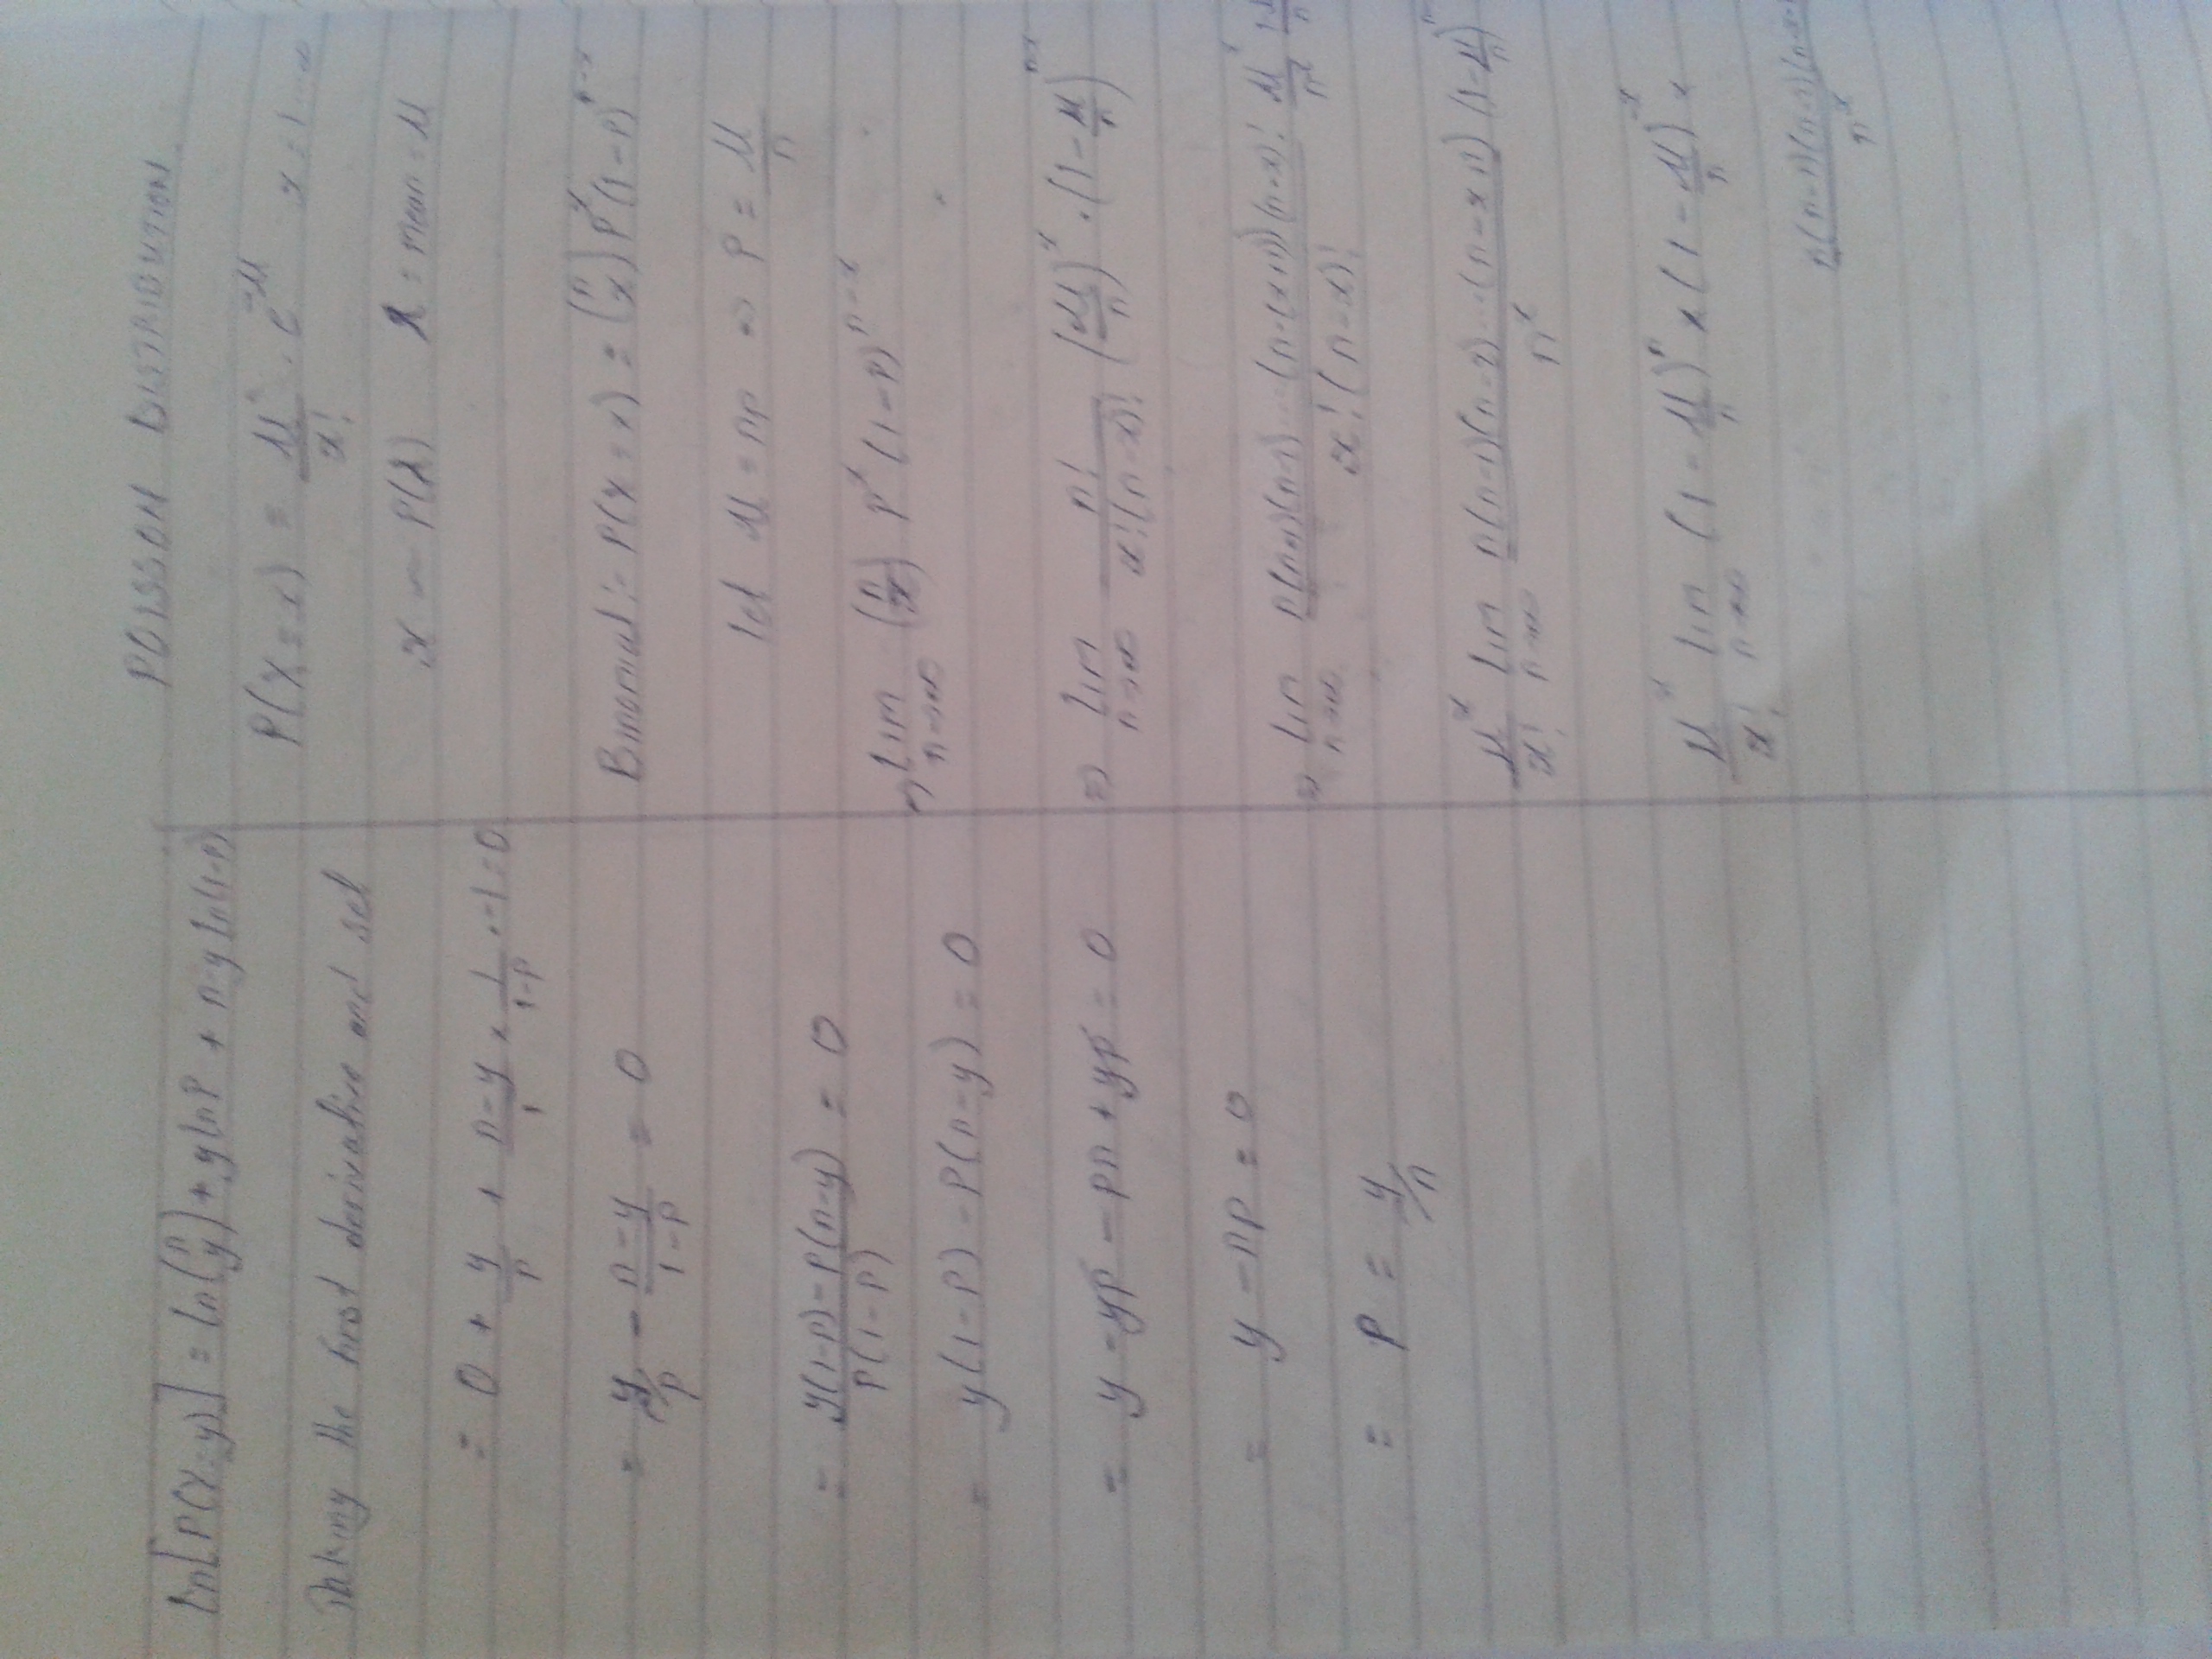 ln[P(Y=y)] = ln(n y) + y ln P + n-y ln(1-P)
Taking the first derivative and set
= 0 + y/p + n-y/1 × 1/1-p · -1 = 0
= y/p - n-y/1-p = 0
= y(1-p)-P(n-y)/P(1-P) = 0
= y(1-P) - P(n-y) = 0
= y - yp - pn + yp = 0
= y - np = 0
= P = y/n
POISSON DISTRIBUTION
P(X=x) = μ^x/x! · e^-μ x = 1 ... ∞
x ~ P(λ) λ = mean = μ
Binomial:- P(X=x) = (n x) P^x (1-P)^n-x
let μ = np => P = μ/n
=> lim n→∞ (n/x) P^x (1-P)^n-x
=> lim n→∞ n!/x!(n-x)! (μ/n)^x · (1-μ/n)^n-x
=> lim n→∞ (n-x)!/x!(n-x)! μ^x/n^x
μ^x/x! lim n→∞ n(n-1)(n-2)...(n-x+1)/n^x (1-μ/n)
μ^x/x! lim n→∞ (1-μ/n)^n × (1-μ/n)^-x ×
n(n-1)(n-2)/n^x